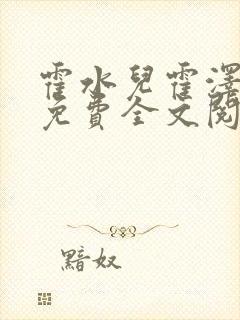 霍水兒霍澤
免費全文閱
黯奴